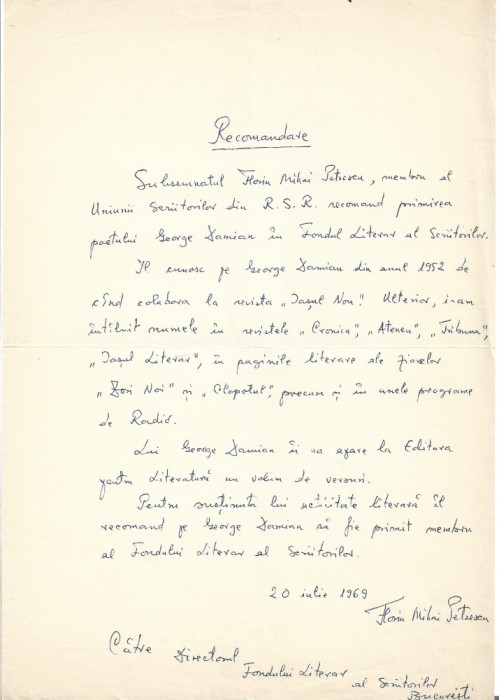 Recomandare
Subsemnatul Florin Mihai Petrescu, membru al
Uniunii Scriitorilor din R.S.R. recomand primirea
poetului George Damian în Fondul Literar al Scriitorilor.
Îl cunosc pe George Damian din anul 1952 de
cînd colabora la revista „Iașul Nou". Ulterior, i-am
întîlnit numele în revistele „Cronica", „Ateneu", „Tribuna",
„Iașul Literar", în paginile literare ale ziarelor
„Zori Noi" și „Clopotul", precum și în unele programe
de Radio.
Lui George Damian îi va apare la Editura
pentru Literatură un volum de versuri.
Pentru susținuta lui activitate literară îl
recomand pe George Damian să fie primit membru
al Fondului Literar al Scriitorilor.
20 iulie 1969
Florin Mihai Petrescu
Către Directorul
Fondului Literar
al Scriitorilor
București